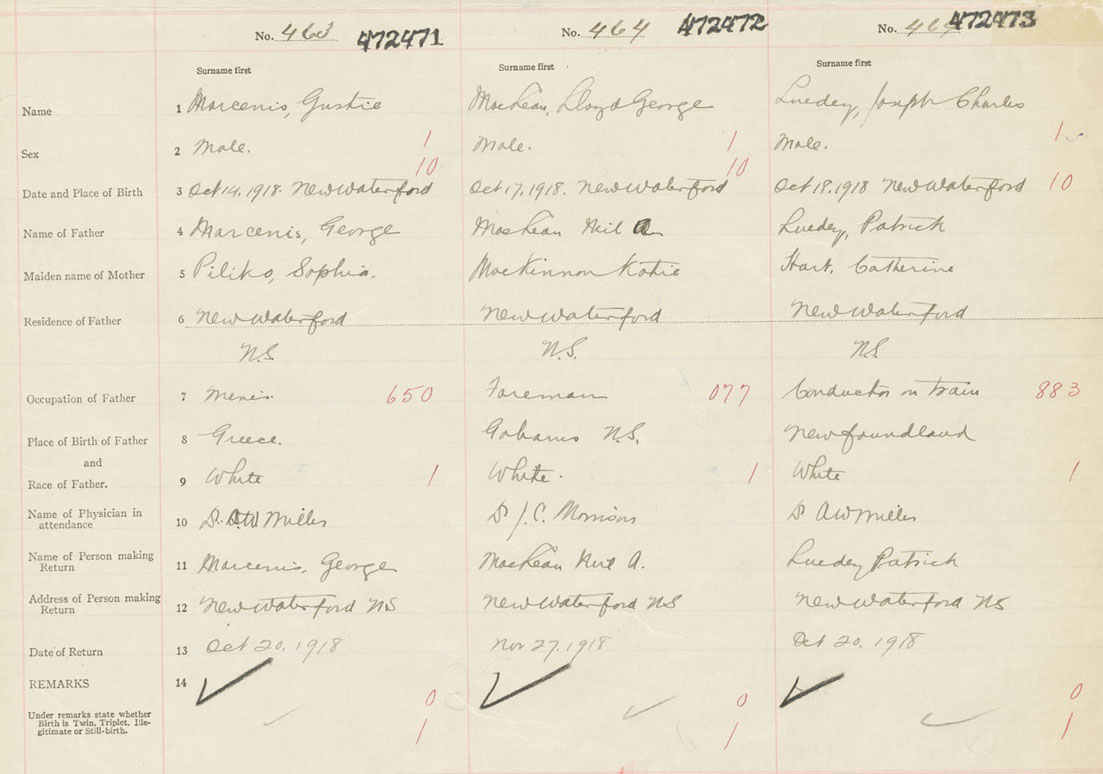 No. 463 472471 No. 464 472472 No. 465 472473
Surname first Surname first Surname first
Name 1 Marcenis, Gustie MacLean, Lloyd George Luedey, Joseph Charles
Sex 2 Male. 1 Male. 1 Male. 1
10 10
Date and Place of Birth 3 Oct 14, 1918. New Waterford Oct 17, 1918. New Waterford Oct 18, 1918 New Waterford 10
Name of Father 4 Marcenis, George MacLean Neil A Luedey, Patrick
Maiden name of Mother 5 Piliko, Sophia. MacKinnon Katie Hart, Catherine
Residence of Father 6 New Waterford New Waterford New Waterford
N.S. N.S. N.S.
Occupation of Father 7 650 Foreman 077 Conductor on train 883
Place of Birth of Father 8 Greece. Gabarus N.S. Newfoundland
and
Race of Father. 9 White 1 White. 1 White 1
Name of Physician in
attendance 10 Dr. A W Miller Dr J. C. Morrison Dr A W Miller
Name of Person making
Return 11 Marcenis, George MacLean Neil A. Luedey Patrick
Address of Person making
Return 12 New Waterford NS New Waterford NS New Waterford NS
Date of Return 13 Oct 20, 1918 Nov 27, 1918 Oct 20, 1918
REMARKS 14
0 0 0
Under remarks state whether
Birth is Twin, Triplet, Ille-
gitimate or Still-birth. 1 1 1